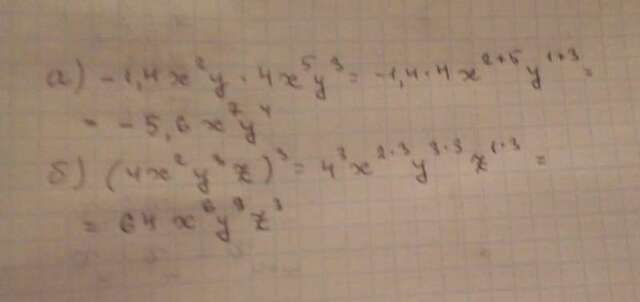 а) -1,4x²y · 4x⁵y³ = -1,4·4x²⁺⁵y¹⁺³ =
= -5,6x⁷y⁴
б) (4x²y³z)³ = 4³x²·³y³·³z¹·³ =
= 64x⁶y⁹z³